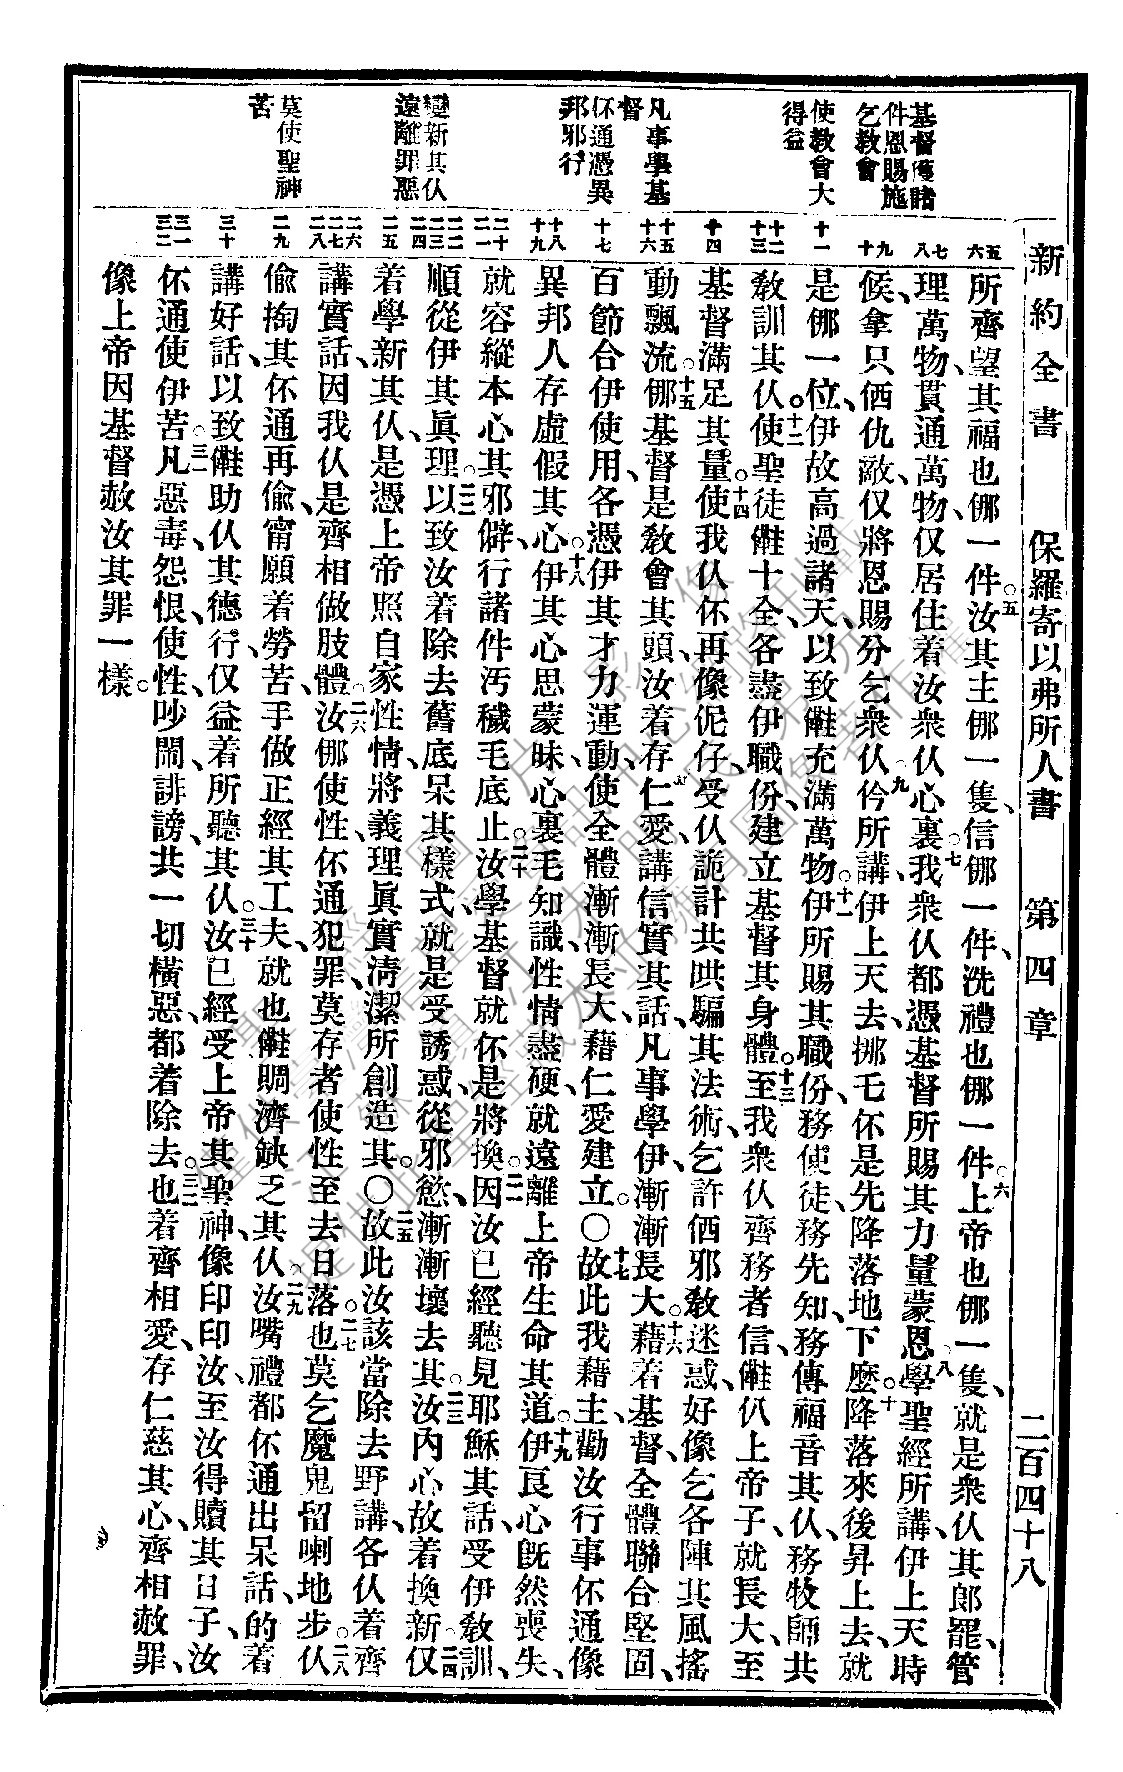 新約全書 保羅寄以弗所人書 第四章 二百四十八
基督獲諸
件恩賜施
乞教會
使教會大
得益
凡事學基
督
伓通憑異
邦邪行
變新其仈
遠離罪惡
莫使聖神
苦
五 六 七 八 九 十 十一 十二 十三 十四 十五 十六 十七 十八 十九 二十 二一 二二 二三 二四 二五 二六 二七 二八 二九 三十 三一 三二
所齊望其福也㑚一件、○五汝其主㑚一隻、信㑚一件、洗禮也㑚一件、○六上帝也㑚一隻、就是衆仈其郎罷、管
理萬物、貫通萬物、仅居住着汝衆仈心裏、○七我衆仈都憑基督所賜其力量蒙恩、○八學聖經所講、伊上天時
候、拿只值仇敵、仅將恩賜分乞衆仈、○九仱所講伊上天去、挪乇伓是先降落地下麽、○十降落來後昇上去、就
是㑚一位、伊故高過諸天、以致𠆧充滿萬物、○十一伊所賜其職份、務使徒、務先知、務傳福音其仈、務牧師共
教訓其仈、○十二使聖徒𠆧十全、各盡伊職份、建立基督其身體、○十三至我衆仈齊務者信、𠆧仈上帝子、就長大、至
基督滿足其量、○十四使我仈伓再像伲仔、受仈詭計共哄騙其法術、乞許値邪教迷惑、好像乞各陣其風搖
動飄流、○十五㑚基督是教會其頭、汝着存仁愛、講信實其話、凡事學伊、漸漸長大、○十六藉着基督、全體聯合堅固、
百節合伊使用、各憑伊其才力運動、使全體漸漸長大、藉仁愛建立。○故此○十七我藉主勸汝行事伓通像
異邦人存虛假其心、○十八伊其心思蒙昧、心裏毛知識、性情盡硬、就遠離上帝生命其道、○十九伊良心旣然喪失、
就容縱本心其邪僻、行諸件汚穢毛底止、○二十汝學基督就伓是將換、○二一因汝已經聽見耶穌其話、受伊教訓、
順從伊其眞理、○二二以致汝着除去舊底呆其樣式、就是受誘惑從邪慾漸漸壞去其、○二三汝內心故着換新、○二四仅
着學新其仈、是憑上帝照自家性情、將義理眞實淸潔所創造其。○○二五故此汝該當除去野講、各仈着齊
講實話、因我仈是齊相做肢體、○二六汝㑚使性、伓通犯罪、莫存者使性至去日落、○二七也莫乞魔鬼留喇地步、○二八仈
偷掏其、伓通再偷、甯願着勞苦、手做正經其工夫、就也𠆧賙濟缺乏其仈、○二九汝嘴禮都伓通出呆話、的着
講好話、以致𠆧助仈其德行、仅益着所聽其仈、○三十汝已經受上帝其聖神、像印印汝、至汝得贖其日子、汝
伓通使伊苦、○三一凡惡毒、怨恨、使性、吵鬧、誹謗、共一切橫惡、都着除去、○三二也着齊相愛、存仁慈其心、齊相赦罪、
像上帝因基督赦汝其罪一樣。